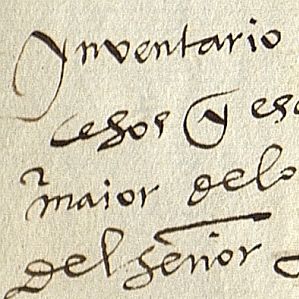 Ynventario
cesos y esc
maior delo
del señor